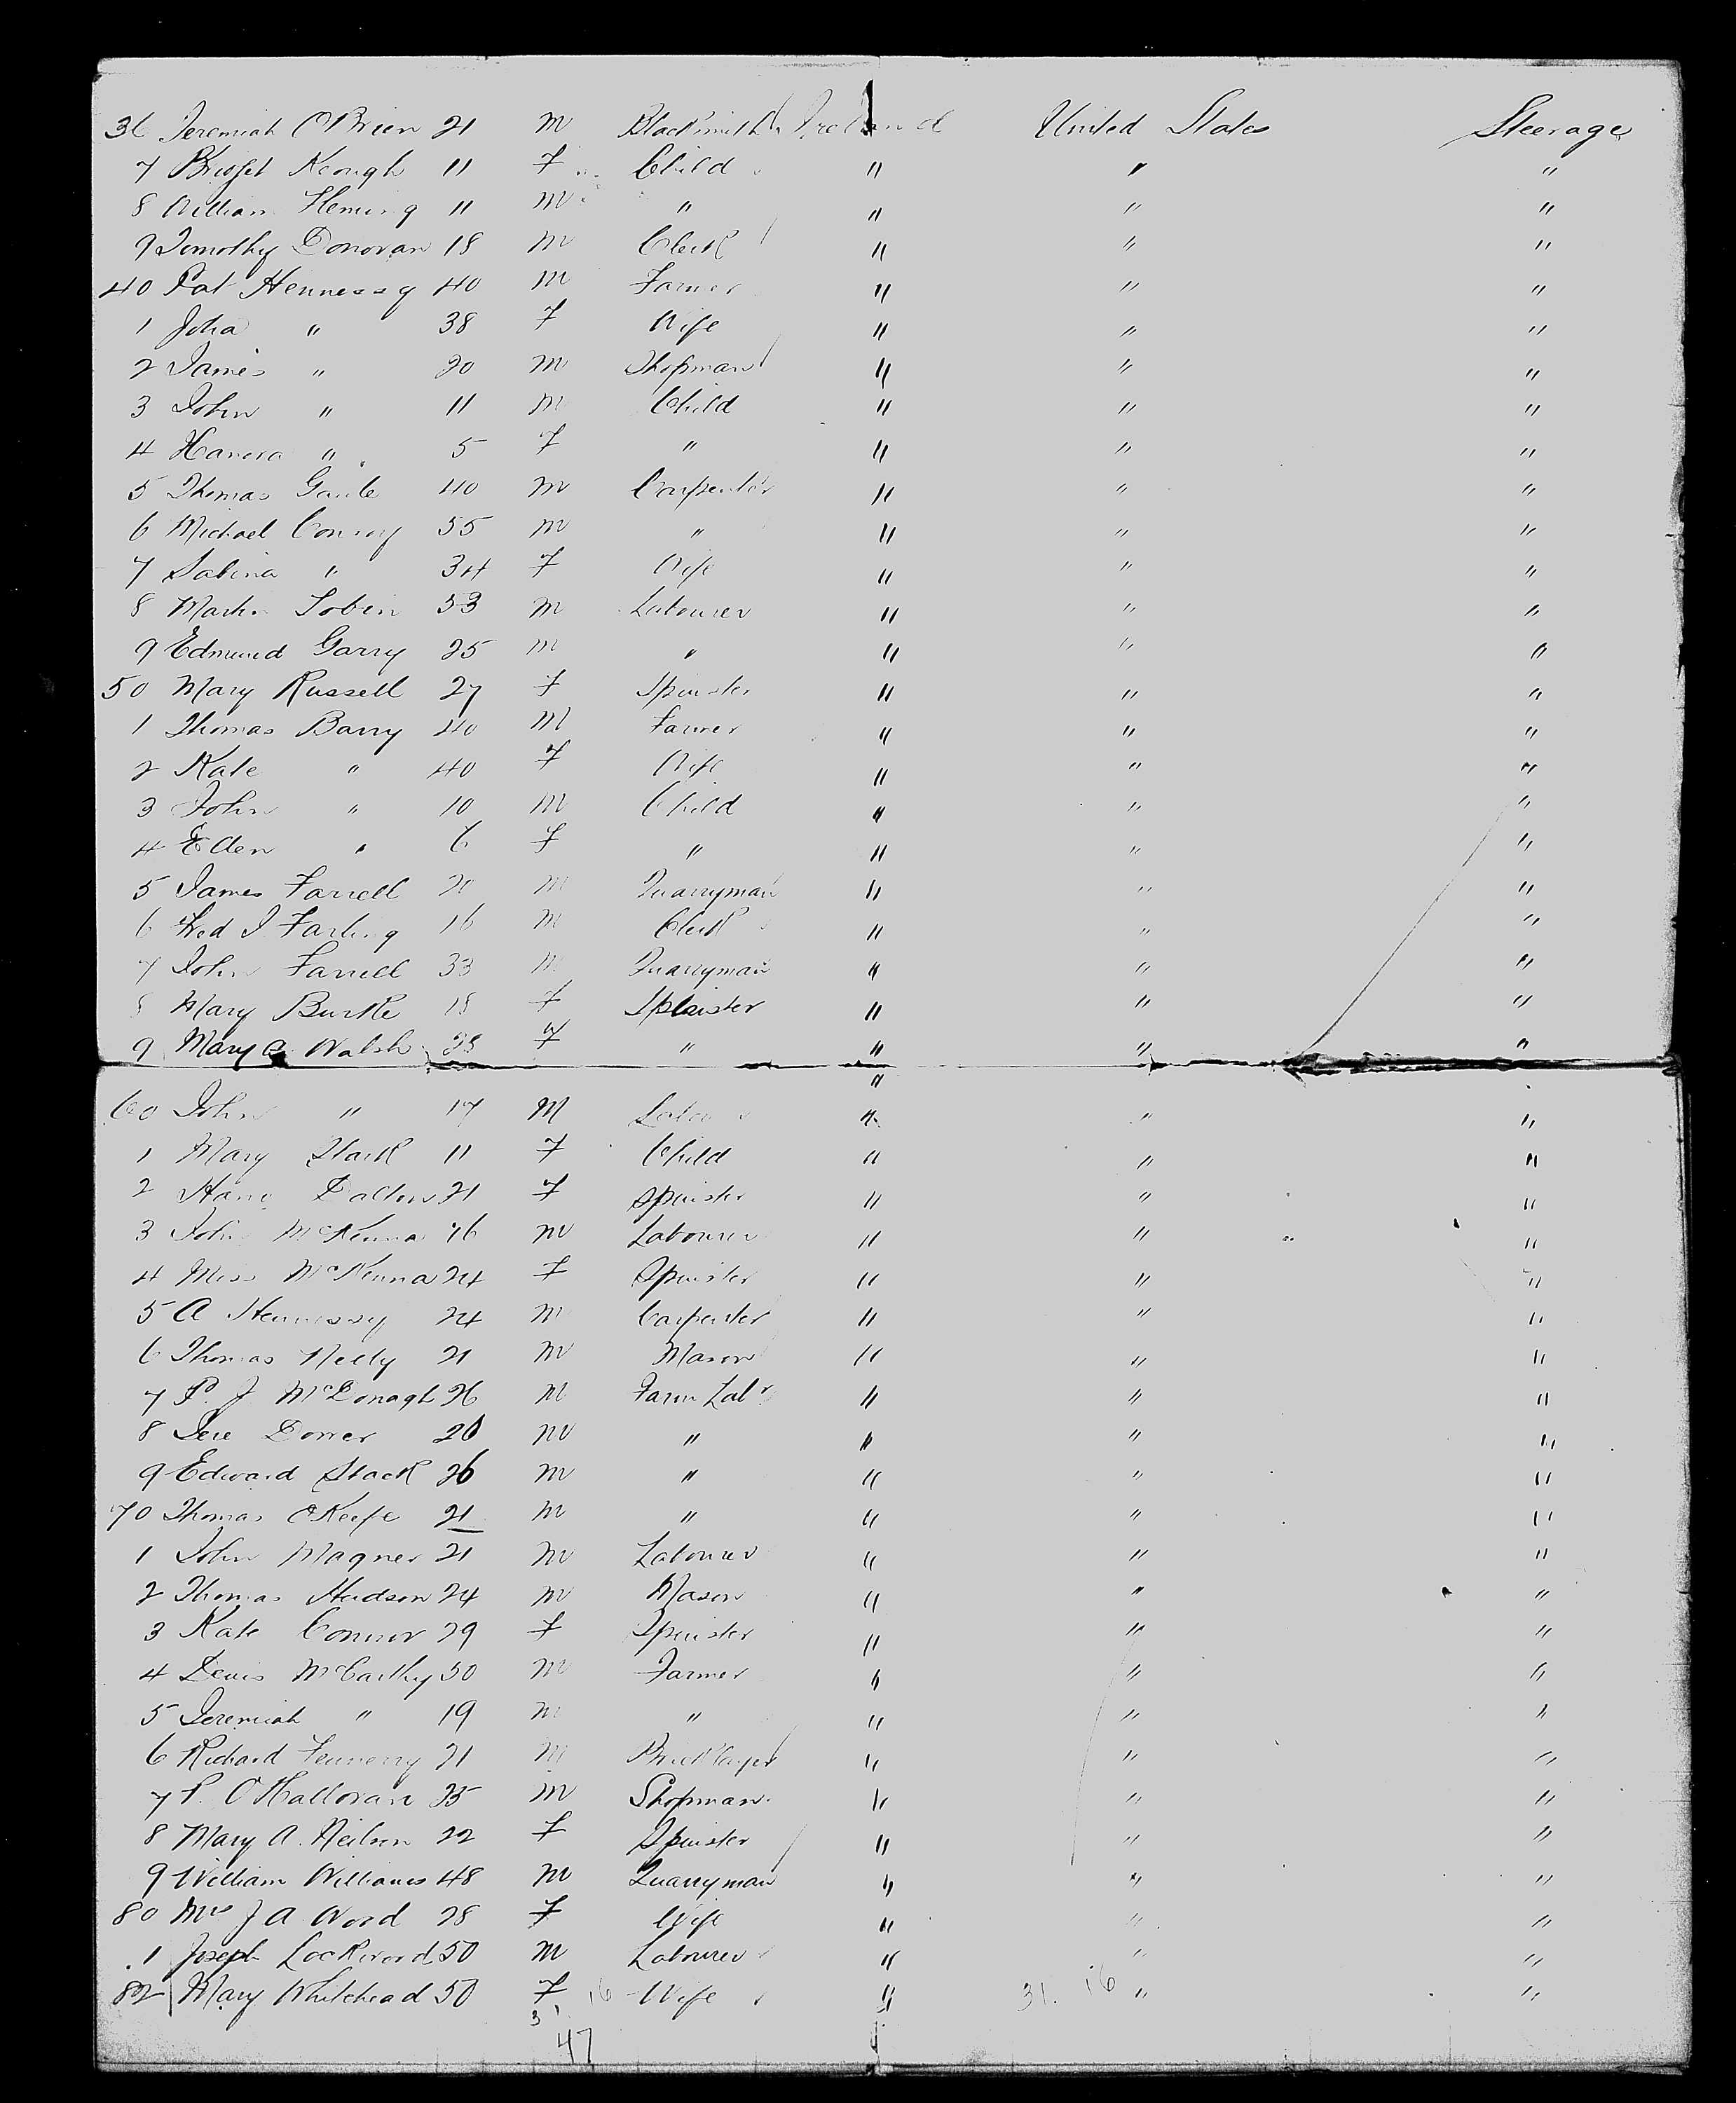 36 Jeremiah O'Brien 21 m Blacksmith Ireland United States Steerage
7 Bridget Keough 11 F Child " " "
8 William Fleming 11 m " " " "
9 Timothy Donovan 18 m Clerk " " "
40 Pat Hennessy 40 m Farmer " " "
1 Joha " 38 F Wife " " "
2 James " 20 m Shopman " " "
3 John " 11 m Child " " "
4 Hanora " 5 F " " " "
5 Thomas Gaule 40 m Carpenter " " "
6 Michael Conroy 55 m " " " "
7 Sabina " 34 F Wife " " "
8 Martin Tobin 53 m Labourer " " "
9 Edmund Garry 25 m " " " "
50 Mary Russell 27 F Spinster " " "
1 Thomas Barry 40 m Farmer " " "
2 Kate " 40 F Wife " " "
3 John " 10 m Child " " "
4 Ellen " 6 F " " " "
5 James Farrell 20 m Quarryman " " "
6 Fred J Farling 16 m Clerk " " "
7 John Farrell 33 m Quarryman " " "
8 Mary Burke 18 F Spinster " " "
9 Mary A Walsh 23 F " " " "
60 John " 17 M " " "
1 Mary Stack 11 F Child " " "
2 Dalton 21 F Spinster " " "
3 John McKenna 46 m Labourer " " "
4 Miss McKenna 24 F Spinster " " "
5 A Hennessy 24 m Carpenter " " "
6 Thomas Neely 21 m Mason " " "
7 P. J McDonagh 26 m Farm Labr " " "
8 Jere Dower 20 m " " " "
9 Edward Stack 26 m " " " "
70 Thomas O'Keefe 21 m " " " "
1 John Magner 21 m Labourer " " "
2 Thomas Hudson 24 m Mason " " "
3 Kate Connor 29 F Spinster " " "
4 Denis McCarthy 50 m Farmer " " "
5 Jeremiah " 19 m " " " "
6 Richard Fennerry 21 m Bricklayer " " "
7 P. O'Halloran 35 m Shopman " " "
8 Mary A. Neilson 22 F Spinster " " "
9 William Williams 48 m Quarryman " " "
80 Mrs J A Word 28 F Wife " " "
1 Joseph Lockwood 50 m Labourer " " "
82 Mary Whitehead 50 F Wife " " "
31 16 31. 16
47